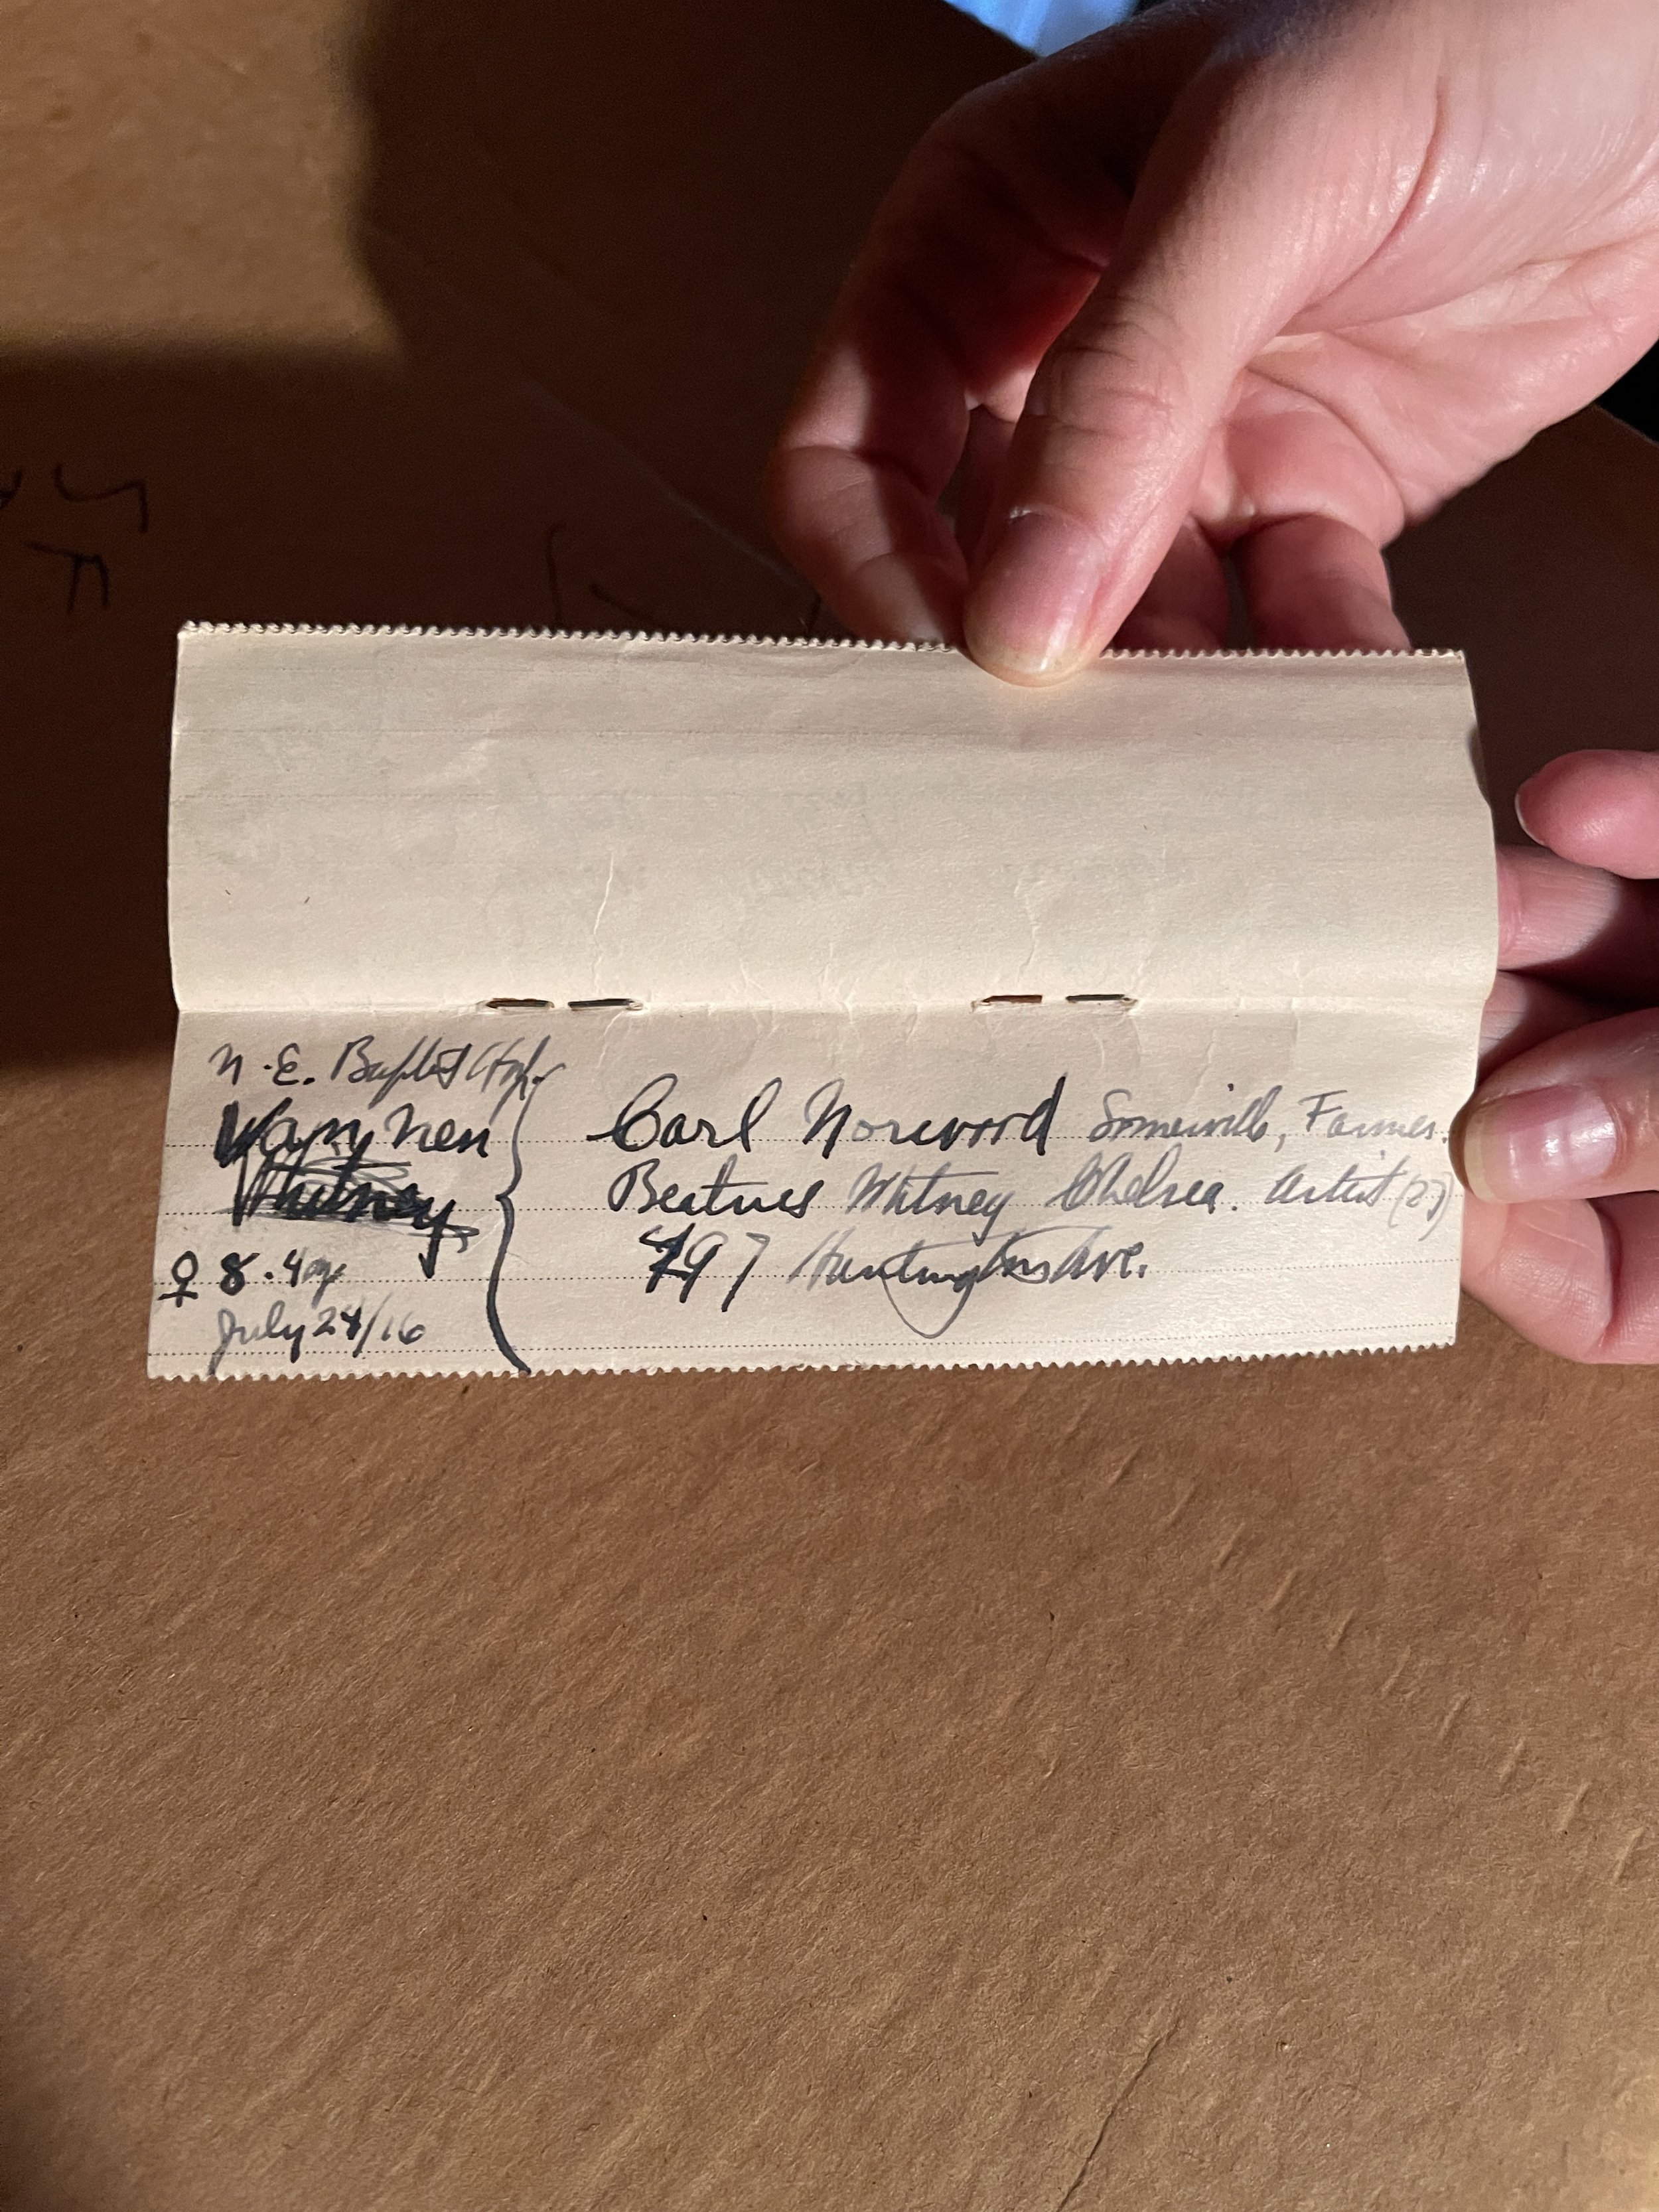 N.E. Baptist Hosp.
Whitney
♀ 8.4
July 24/16
Carl Norwood Somerville, Farmer.
Beatrice Whitney Chelsea. Artist (27)
797 Huntington Ave.